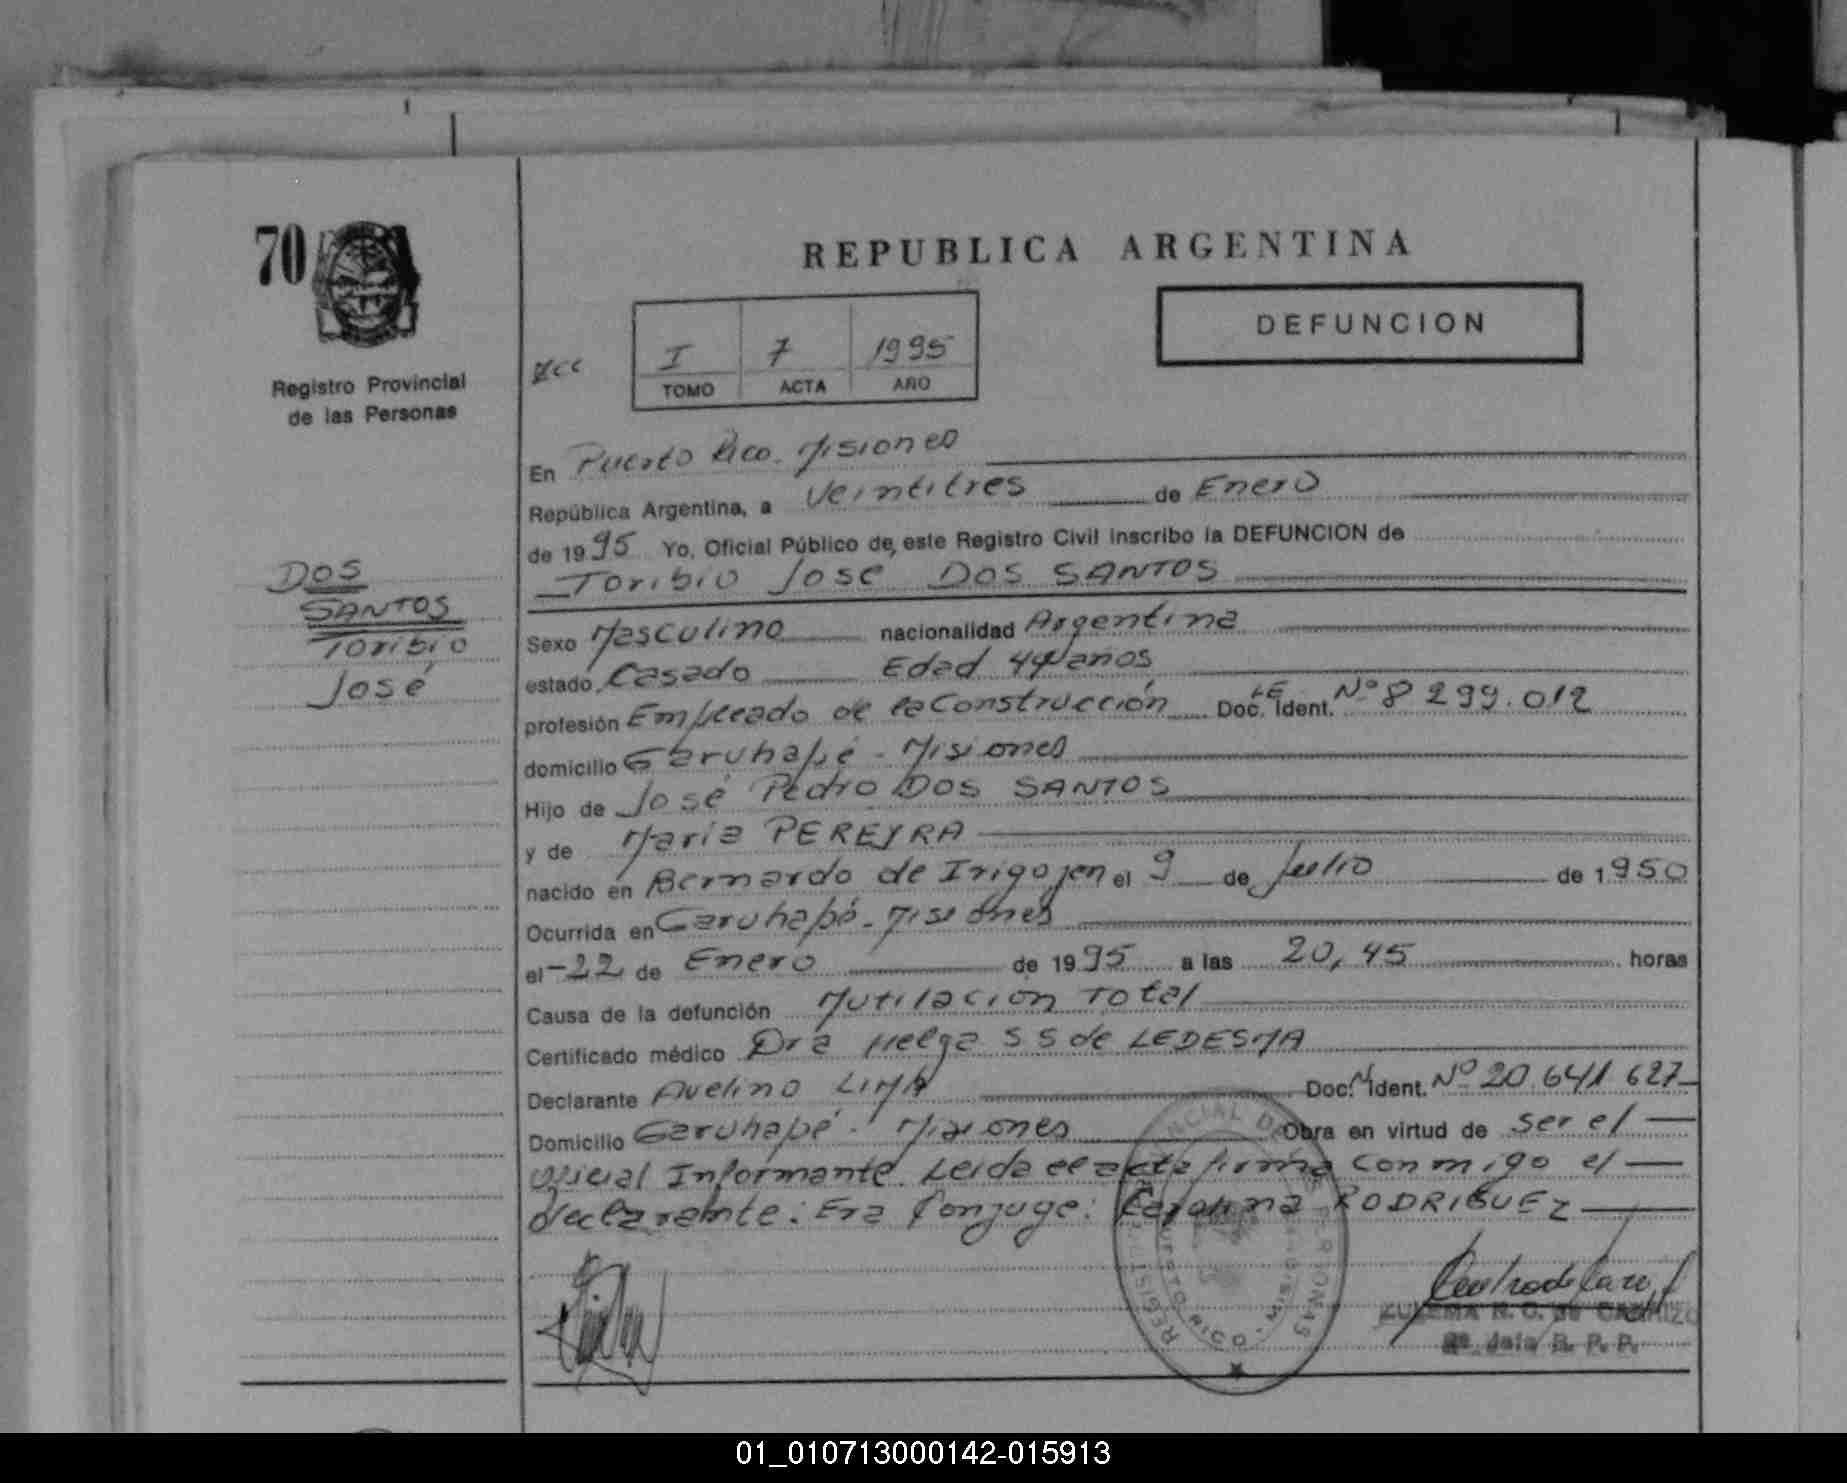 70
REPUBLICA ARGENTINA
DEFUNCION
Registro Provincial
de las Personas
I 7 1995
TOMO ACTA AÑO
En Puerto Rico. Misiones
República Argentina, a Veintitres de Enero
de 1995 Yo, Oficial Público de este Registro Civil inscribo la DEFUNCION de
Toribio José DOS SANTOS
DOS
SANTOS
Toribio
José
Sexo Masculino nacionalidad Argentina
estado Casado Edad 44 años
profesión Empleado de la Construcción Doc. Ident. LE Nº 8 299.012
domicilio Garuhapé - Misiones
Hijo de José Pedro DOS SANTOS
y de Maria PEREYRA
nacido en Bernardo de Irigoyen el 9 de Julio de 1950
Ocurrida en Garuhapé - Misiones
el -22 de Enero de 1995 a las 20,45 horas
Causa de la defunción Mutilación Total
Certificado médico Dra Helga S S de LEDESMA
Declarante Avelino LIMA Doc. Ident. Nº 20.641.627
Domicilio Garuhapé - Misiones Obra en virtud de ser el
oficial Informante. Leida el acta firma conmigo el
declarante: Era Conyuge: RODRIGUEZ
PUERTO RICO - MISIONES
ZULEMA R. O. de CARRIZO
2ª Jefe R. P. P.
01_010713000142-015913